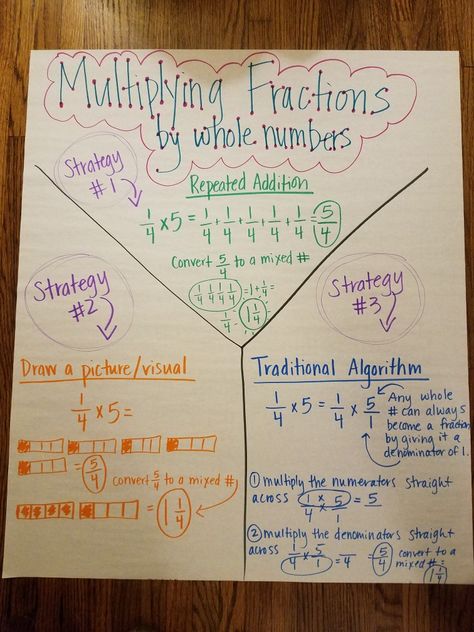 Multiplying Fractions
by whole numbers
Strategy
#1
Repeated Addition
1/4 × 5 = 1/4 + 1/4 + 1/4 + 1/4 + 1/4 = 5/4
convert 5/4 to a mixed #
1/4 1/4 1/4 1/4 = 1 + 1/4 =
1/4 = 1 1/4
Strategy
#2
Draw a picture/visual
1/4 × 5 =
= 5/4 convert 5/4 to a mixed #
= 1 1/4
Strategy
#3
Traditional Algorithm
1/4 × 5 = 1/4 × 5/1
Any whole
# can always
become a fraction
by giving it a
denominator of 1.
① multiply the numerators straight
across 1/4 × 5/1 = 5
② multiply the denominators straight
across 1/4 × 5/1 = /4 = 5/4 convert to a
mixed # =
1 1/4